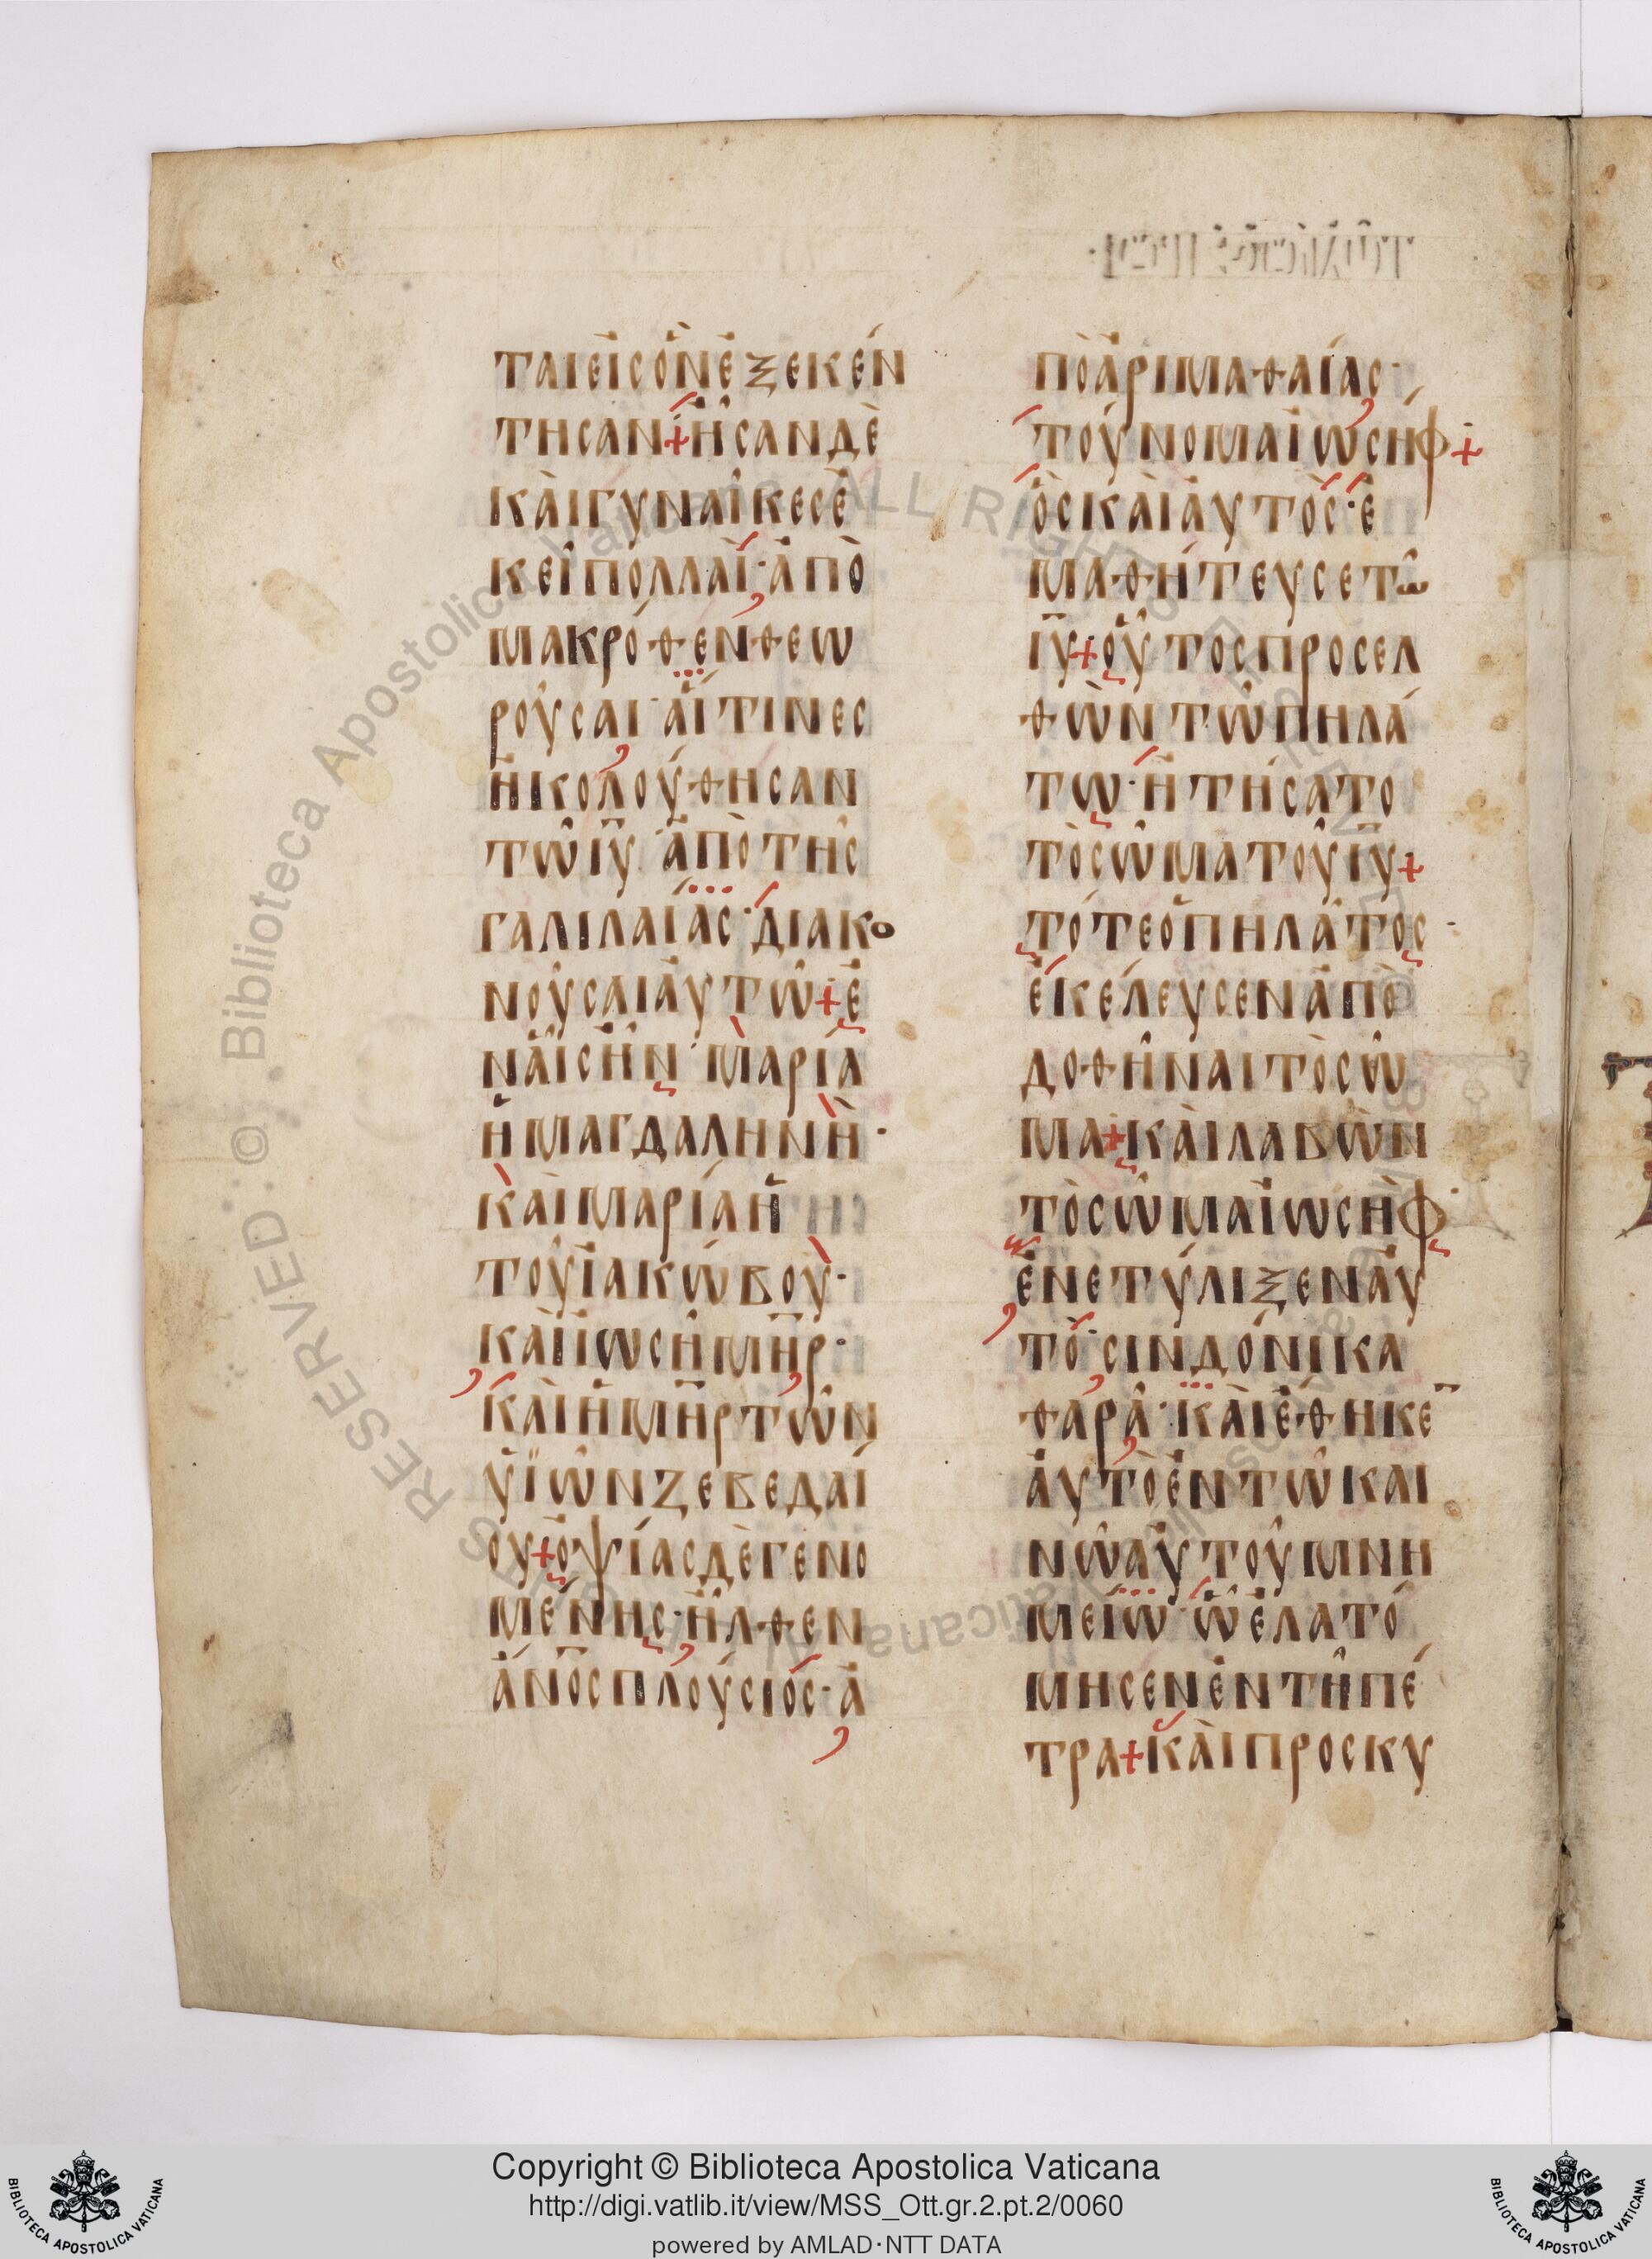 ΤΑΙΕἸΣὋΝἘΞΕΚΈΝ
ΤΗΣΑΝ+ἮΣΑΝΔῈ
ΚΑῚΓΥΝΑΙ͂ΚΕΣἘ
ΚΕΙ͂ΠΟΛΛΑῚ·ἈΠῸ
ΜΑΚΡΌΘΕΝΘΕΩ
ΡΟΥ͂ΣΑΙ·ἍΙΤΙΝΕΣ
ἨΚΟΛΟΎΘΗΣΑΝ
ΤΩ͂ΙΥ·ἈΠῸΤΗ͂Σ
ΓΑΛΙΛΑΊΑΣ·ΔΙΑΚΟ
ΝΟΥ͂ΣΑΙΑΥ̓ΤΩ͂+Ἐ
ΝΑΙ͂ΣἮΝ·ΜΑΡΊΑ
ἩΜΑΓΔΑΛΗΝῊ·
ΚΑῚΜΑΡΊΑἩ
ΤΟΥ͂ἸΑΚΏΒΟΥ·
ΚΑῚἸΩΣΗ͂ΜΗΡ·
ΚΑῚἩΜΗΡΤΩ͂Ν
ΥἹΩ͂ΝΖΕΒΕΔΑΊ
ΟΥ+ὈΨΊΑΣΔῈΓΕΝΟ
ΜΈΝΗΣ·ἮΛΘΕΝ
ἌΝΟΣΠΛΟΎΣΙΟΣ·Ἀ
ΠῸἈΡΙΜΑΘΑΊΑΣ·
ΤΟΎΝΟΜΑἸΩΣΉΦ+
ὋΣΚΑῚΑΥ̓ΤῸΣ·Ἐ
ΜΑΘΉΤΕΥΣΕΤΩ͂
ΙΥ+ΟὟΤΟΣΠΡΟΣΕΛ
ΘῺΝΤΩ͂ΠΗΛΆ
ΤΩ·ἨΤΉΣΑΤΟ
ΤῸΣΩ͂ΜΑΤΟΥ͂ΙΥ+
ΤΌΤΕὉΠΗΛΑ͂ΤΟΣ·
ἘΚΈΛΕΥΣΕΝἈΠΟ
ΔΟΘΗ͂ΝΑΙΤῸΣΩ͂
ΜΑ+ΚΑῚΛΑΒῺΝ
ΤῸΣΩ͂ΜΑἸΩΣῊΦ·
ἘΝΕΤΎΛΙΞΕΝΑΥ̓
ΤῸ·ΣΙΝΔΌΝΙΚΑ
ΘΑΡΑ͂·ΚΑῚἜΘΗΚΕ
ΑΥ̓ΤῸἘΝΤΩ͂ΚΑΙ
ΝΩ͂ΑΥ̓ΤΟΥ͂ΜΝΗ
ΜΕΊΩ·ὯἘΛΑΤΌ
ΜΗΣΕΝἘΝΤΗ͂ΠΈ
ΤΡΑ+ΚΑῚΠΡΟΣΚΥ
Copyright © Biblioteca Apostolica Vaticana
http://digi.vatlib.it/view/MSS_Ott.gr.2.pt.2/0060
powered by AMLAD·NTT DATA
BIBLIOTECA APOSTOLICA VATICANA
BIBLIOTECA APOSTOLICA VATICANA